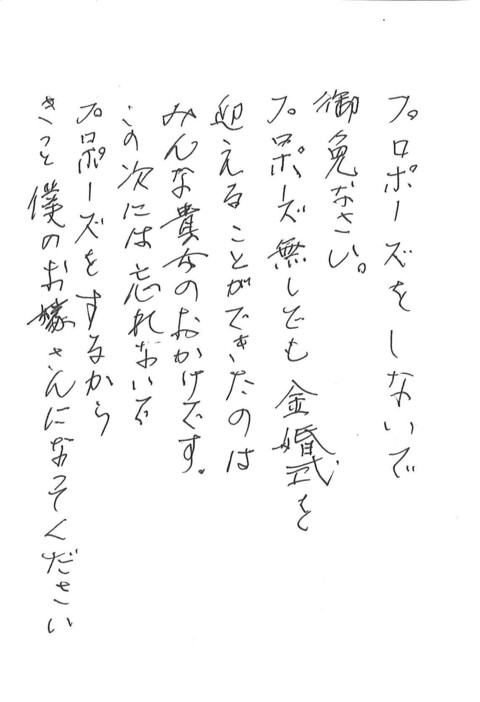 プロポーズをしないで
御免なさい。
プロポーズ無しでも金婚式を
迎えることができたのは
みんな貴女のおかげです。
この次には忘れないで
プロポーズをするから
きっと僕のお嫁さんになってください